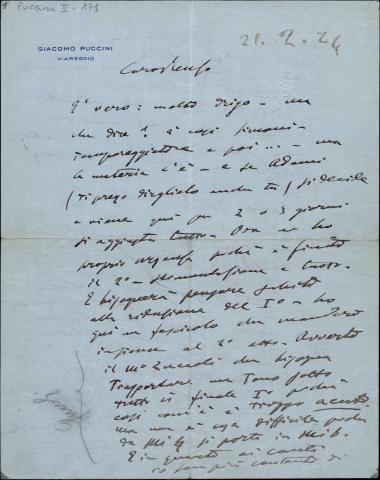 Puccini II - 171
GIACOMO PUCCINI
VIAREGGIO
21. 2. 24
Caro Renzo
E' vero: molto dirigo - ma
che dire? è così Simoni -
temporeggiatore e poi .... - ma
la materia c'è - e se Adami
(ti prego dirglielo anche tu) si decide
e viene qui per 2 o 3 giorni
si aggiusta tutto. Ora io ho
proprio urgenza perché è finito
il 2º - strumentazione e tutto.
E bisognerà pensare subito
alla riduzione del Iº - ho
qui un fascicolo che manderò
insieme al 2º atto. Avverto
il Mº Zuccoli che bisogna
trasportare un tono sotto
tutto il finale Iº perché
così com'è è troppo acuto.
ma non è cosa difficile perché
da mi si porta in mi b.
E in quanto ai canti